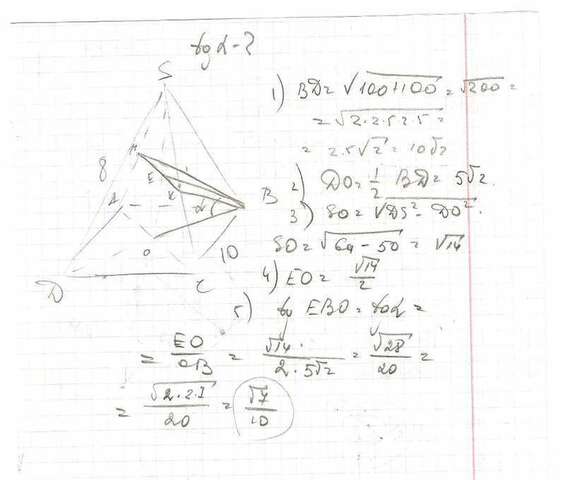 tg α - ?
S
8
M
A
E
K
α
B
O
10
D
C
1) BD = √100+100 = √200 =
= √2·2·5·2·5 =
= 2·5√2 = 10√2
2) DO = 1/2 BD = 5√2.
3) SO = √DS² - DO².
SO = √64 - 50 = √14
4) EO = √14/2
5) tg EBO = tg α =
= EO/OB = √14/2·5√2 = √28/20 =
= √2·2·7/20 = √7/10